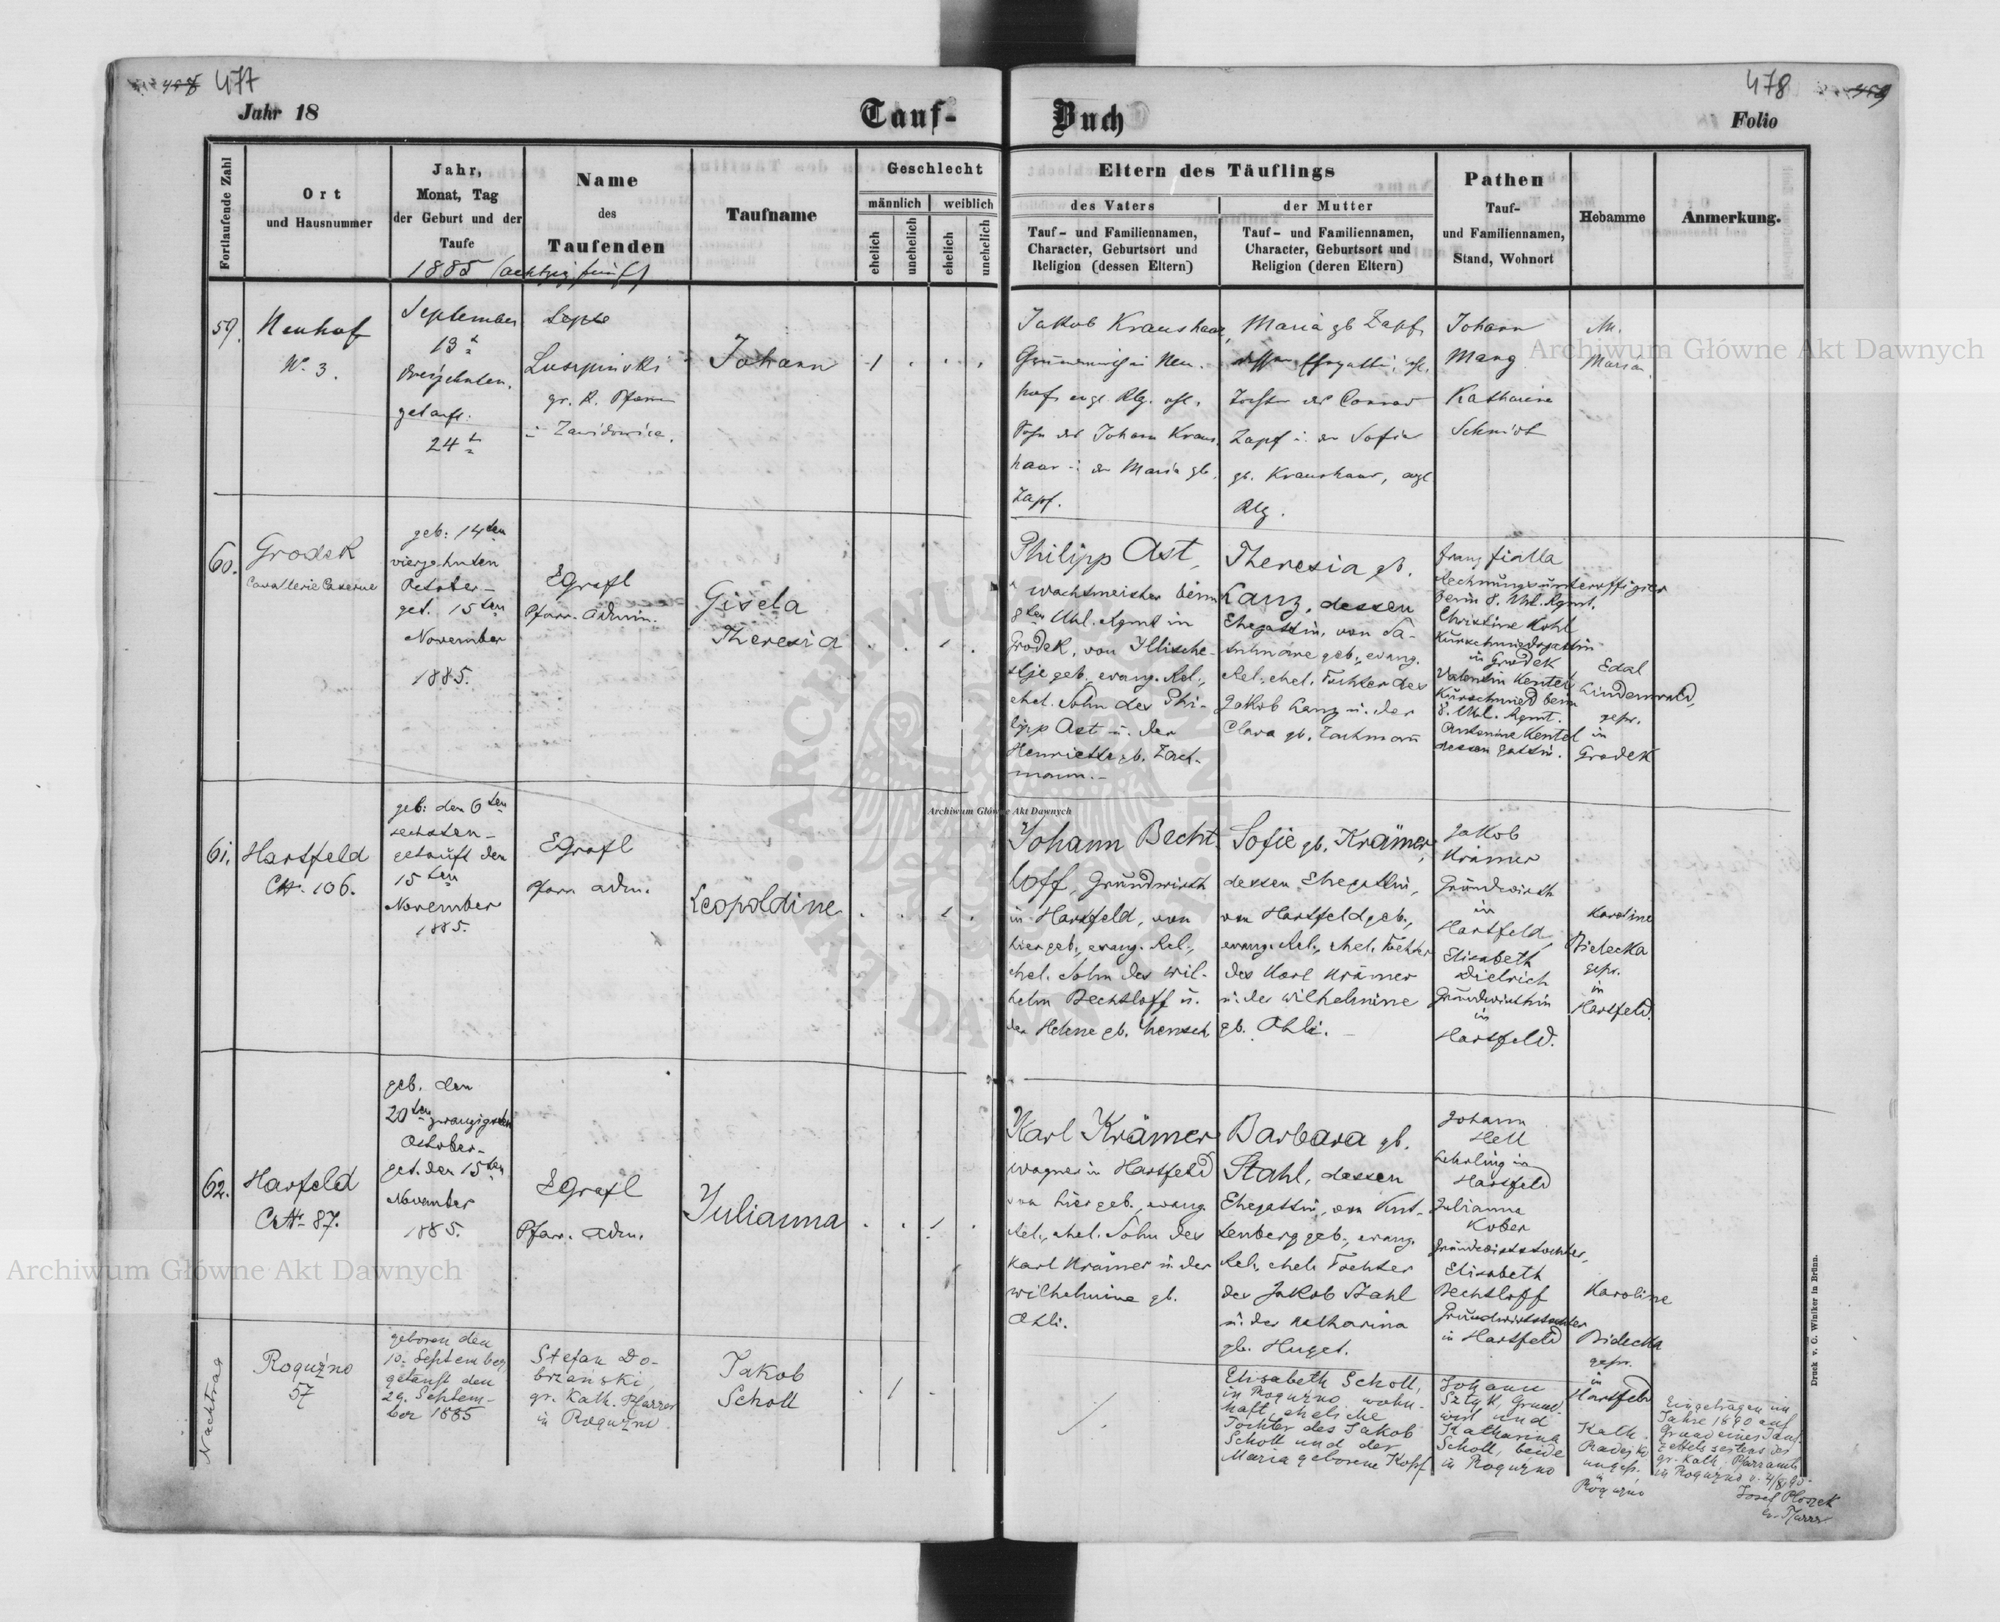 477
478
Jahr 18
Tauf-
Buch
Folio
Fortlaufende Zahl
Ort
und Hausnummer
Jahr,
Monat, Tag
der Geburt und der
Taufe
1885 (achtzig fünf)
Name
des
Taufenden
Taufname
Geschlecht
männlich
weiblich
ehelich
unehelich
ehelich
unehelich
Eltern des Täuflings
des Vaters
Tauf- und Familiennamen,
Character, Geburtsort und
Religion (dessen Eltern)
der Mutter
Tauf- und Familiennamen,
Character, Geburtsort und
Religion (deren Eltern)
Pathen
Tauf-
und Familiennamen,
Stand, Wohnort
Hebamme
Anmerkung.
59.
Neuhof
No. 3.
September
13t
dreizehnten.
getauft:
24t
gr. K. Pfarrer
Johann
1
Jakob Kraushaar,
hof, evgl. Rlg. ehl.
Sohn des Johann Kraus-
haar u. der Maria gb.
Zapf.
Maria gb Zapf,
Tochter des Conrad
Zapf u. der Sofia
gb. Kraushaar, evgl
Rlg.
Johann
Mang
Katharina
Schmidt
Maria
60.
Grodek
Cavallerie Caserne
geb: 14ten
vierzehnten
October -
get. 15ten
November
1885.
EGrafl
Pfarr. Admin.
Gisela
Theresia
Philipp Ast,
Wachtmeister beim
8ten Uhl. Rgmt in
Grodek, von Illische-
stje geb., evang. Rel.,
ehel. Sohn des Phi-
lipp Ast u. der
Henriette gb. Zach-
mann. -
Theresia gb.
Lanz, dessen
Ehegattin, von Sa-
tulmare geb., evang.
Rel., ehel. Tochter des
Jakob Lanz u. der
Clara gb. Zachmann
Franz Fialla
Rechnungsunteroffizier
beim 8. Uhl. Rgmt.
Christine Kohl
Kurschmiedsgattin
in Grodek
Valentin Kentel
Kurschmied beim
8. Uhl. Rgmt.
Antonine Kentel
dessen Gattin.
Edal
Lindenwald,
gepr.
in
Grodek
61.
Hartfeld
CN. 106.
geb: den 6ten
sechsten -
getauft den
15ten
November
1885.
EGrafl
Pfarr adm.
Leopoldine
Johann Becht-
loff, Grundwirth
in Hartfeld, von
hier geb., evang. Rel.,
ehel. Sohn des Wil-
helm Bechtloff u.
der Helene gb. Mensch
Sofie gb. Krämer,
dessen Ehegattin,
von Hartfeld geb.,
evang. Rel., ehel. Tochter
des Karl Krämer
u. der Wilhelmine
gb. Ohli. -
Jakob
Krämer
Grundwirth
in
Hartfeld
Elisabeth
Dietrich
Grundwirthin
in
Hartfeld.
Karoline
Bielecka
gepr.
in
Hartfeld.
62.
Harfeld
CN. 87.
geb. den
20ten zwanzigsten
October -
get. den 15ten
November
1885.
EGrafl
Pfarr. adm.
Julianna
Karl Krämer
Wagner in Hartfeld
von hier geb., evang.
Rel., ehel. Sohn des
Karl Krämer u. der
Wilhelmine gb.
Ohli.
Barbara gb.
Stahl, dessen
Ehegattin, von Kut-
tenberg geb., evang.
Rel., ehel. Tochter
des Jakob Stahl
u. der Katharina
gb. Huget.
Johann
Hell
Lehrling in
Hartfeld
Julianna
Kober
Grundwirtstochter,
Elisabeth
Bechtloff
Grundwirtstochter
in Hartfeld
Karoline
Bielecka
gepr.
in
Hartfeld
Nachtrag
Roguźno
57
geboren den
10. September,
getauft den
29. Septem-
ber 1885
Stefan Do-
brzański
gr. Kath. Pfarrer
in Roguźno
Jakob
Scholl
1
Elisabeth Scholl,
in Roguźno wohn-
haft, eheliche
Tochter des Jakob
Scholl und der
Maria geborene Kopf
Johann
Sztyk, Grund-
wirt und
Katharina
Scholl, beide
in Roguźno
Kath.
ungepr.
in
Roguźno
Eingetragen im
Jahre 1890 auf
Grund eines Tauf-
zettels seitens des
gr. Kath. Pfarramts
in Roguźno v. 4/8 90.
ev. Pfarrer
Druck v. C. Winiker in Brünn.
Archiwum Główne Akt Dawnych
Archiwum Główne Akt Dawnych
Archiwum Główne Akt Dawnych
ARCHIWUM GŁÓWNE AKT DAWNYCH